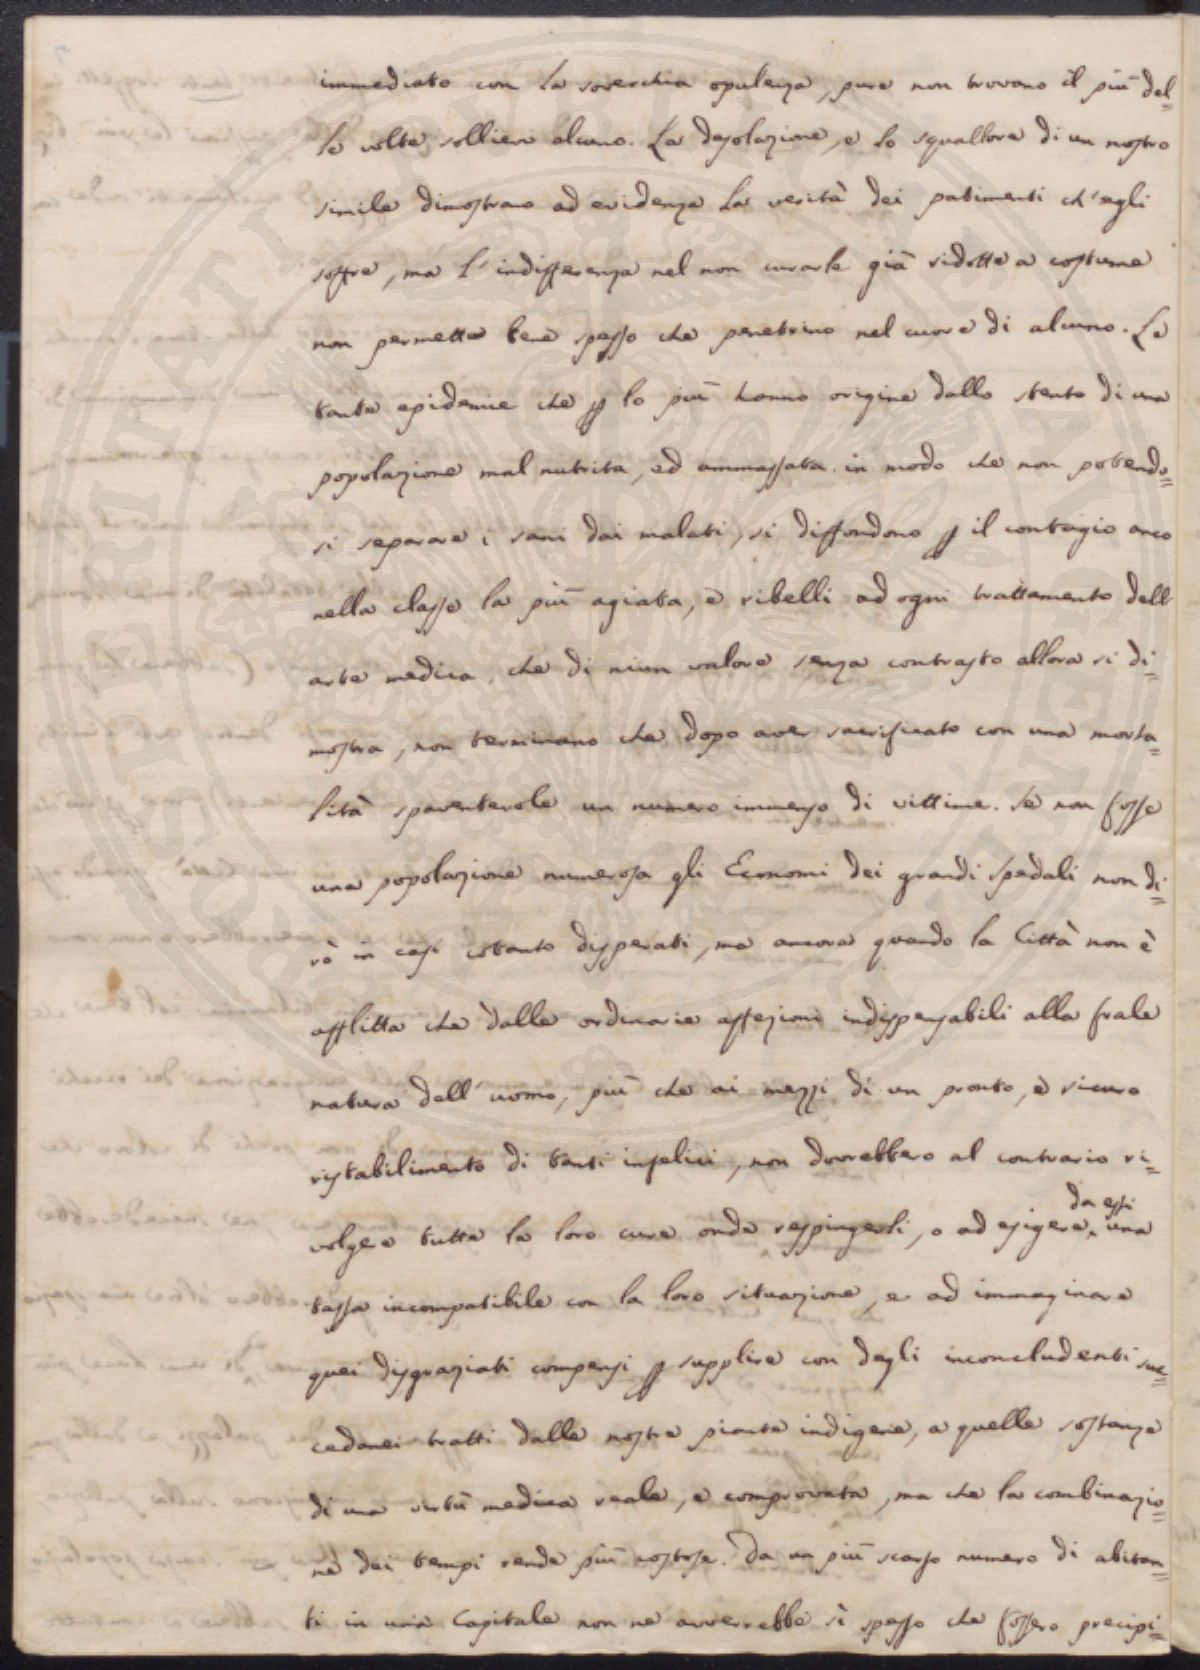 immediato con la soverchia opulenza, pure non trovano il più del=
le volte sollievo alcuno. La desolazione, e lo squallore di un nostro
simile dimostrano ad evidenza la verità dei patimenti ch'egli
soffre, ma l'indifferenza nel non curarle già ridotte a costume
non permette bene spesso che penetrino nel cuore di alcuno. Le
tante epidemie che p lo più hanno origine dallo stento di una
popolazione mal nutrita, ed ammassata in modo che non potendo=
si separare i sani dai malati, si diffondono p il contagio anco
nella classe la più agiata, e ribelli ad ogni trattamento dell
arte medica, che di niun valore senza contrasto allora si di=
mostra, non terminano che dopo aver sacrificato con una morta=
lità spaventevole un numero immenso di vittime. Se non fosse
una popolazione numerosa gli Economi dei grandi Spedali non di=
rò in casi cotanto disperati, ma ancora quando la Città non è
afflitta che dalle ordinarie affezioni indispensabili alla frale
natura dell'uomo, più che ai mezzi di un pronto, e sicuro
ristabilimento di tanti infelici, non dovrebbero al contrario ri=
volgere tutte le loro cure onde respingerli, o ad esigere da essi una
tassa incompatibile con la loro situazione, e ad immaginare
quei disgraziati compensi p supplire con degli inconcludenti suc=
cedanei tratti dalle nostre piante indigene, a quelle sostanze
di una virtù medica reale, e comprovata, ma che la combinazio=
ne dei tempi rende più costose. Da un più scarso numero di abitan=
ti in una Capitale non ne avverrebbe sì spesso che fossero precipi=